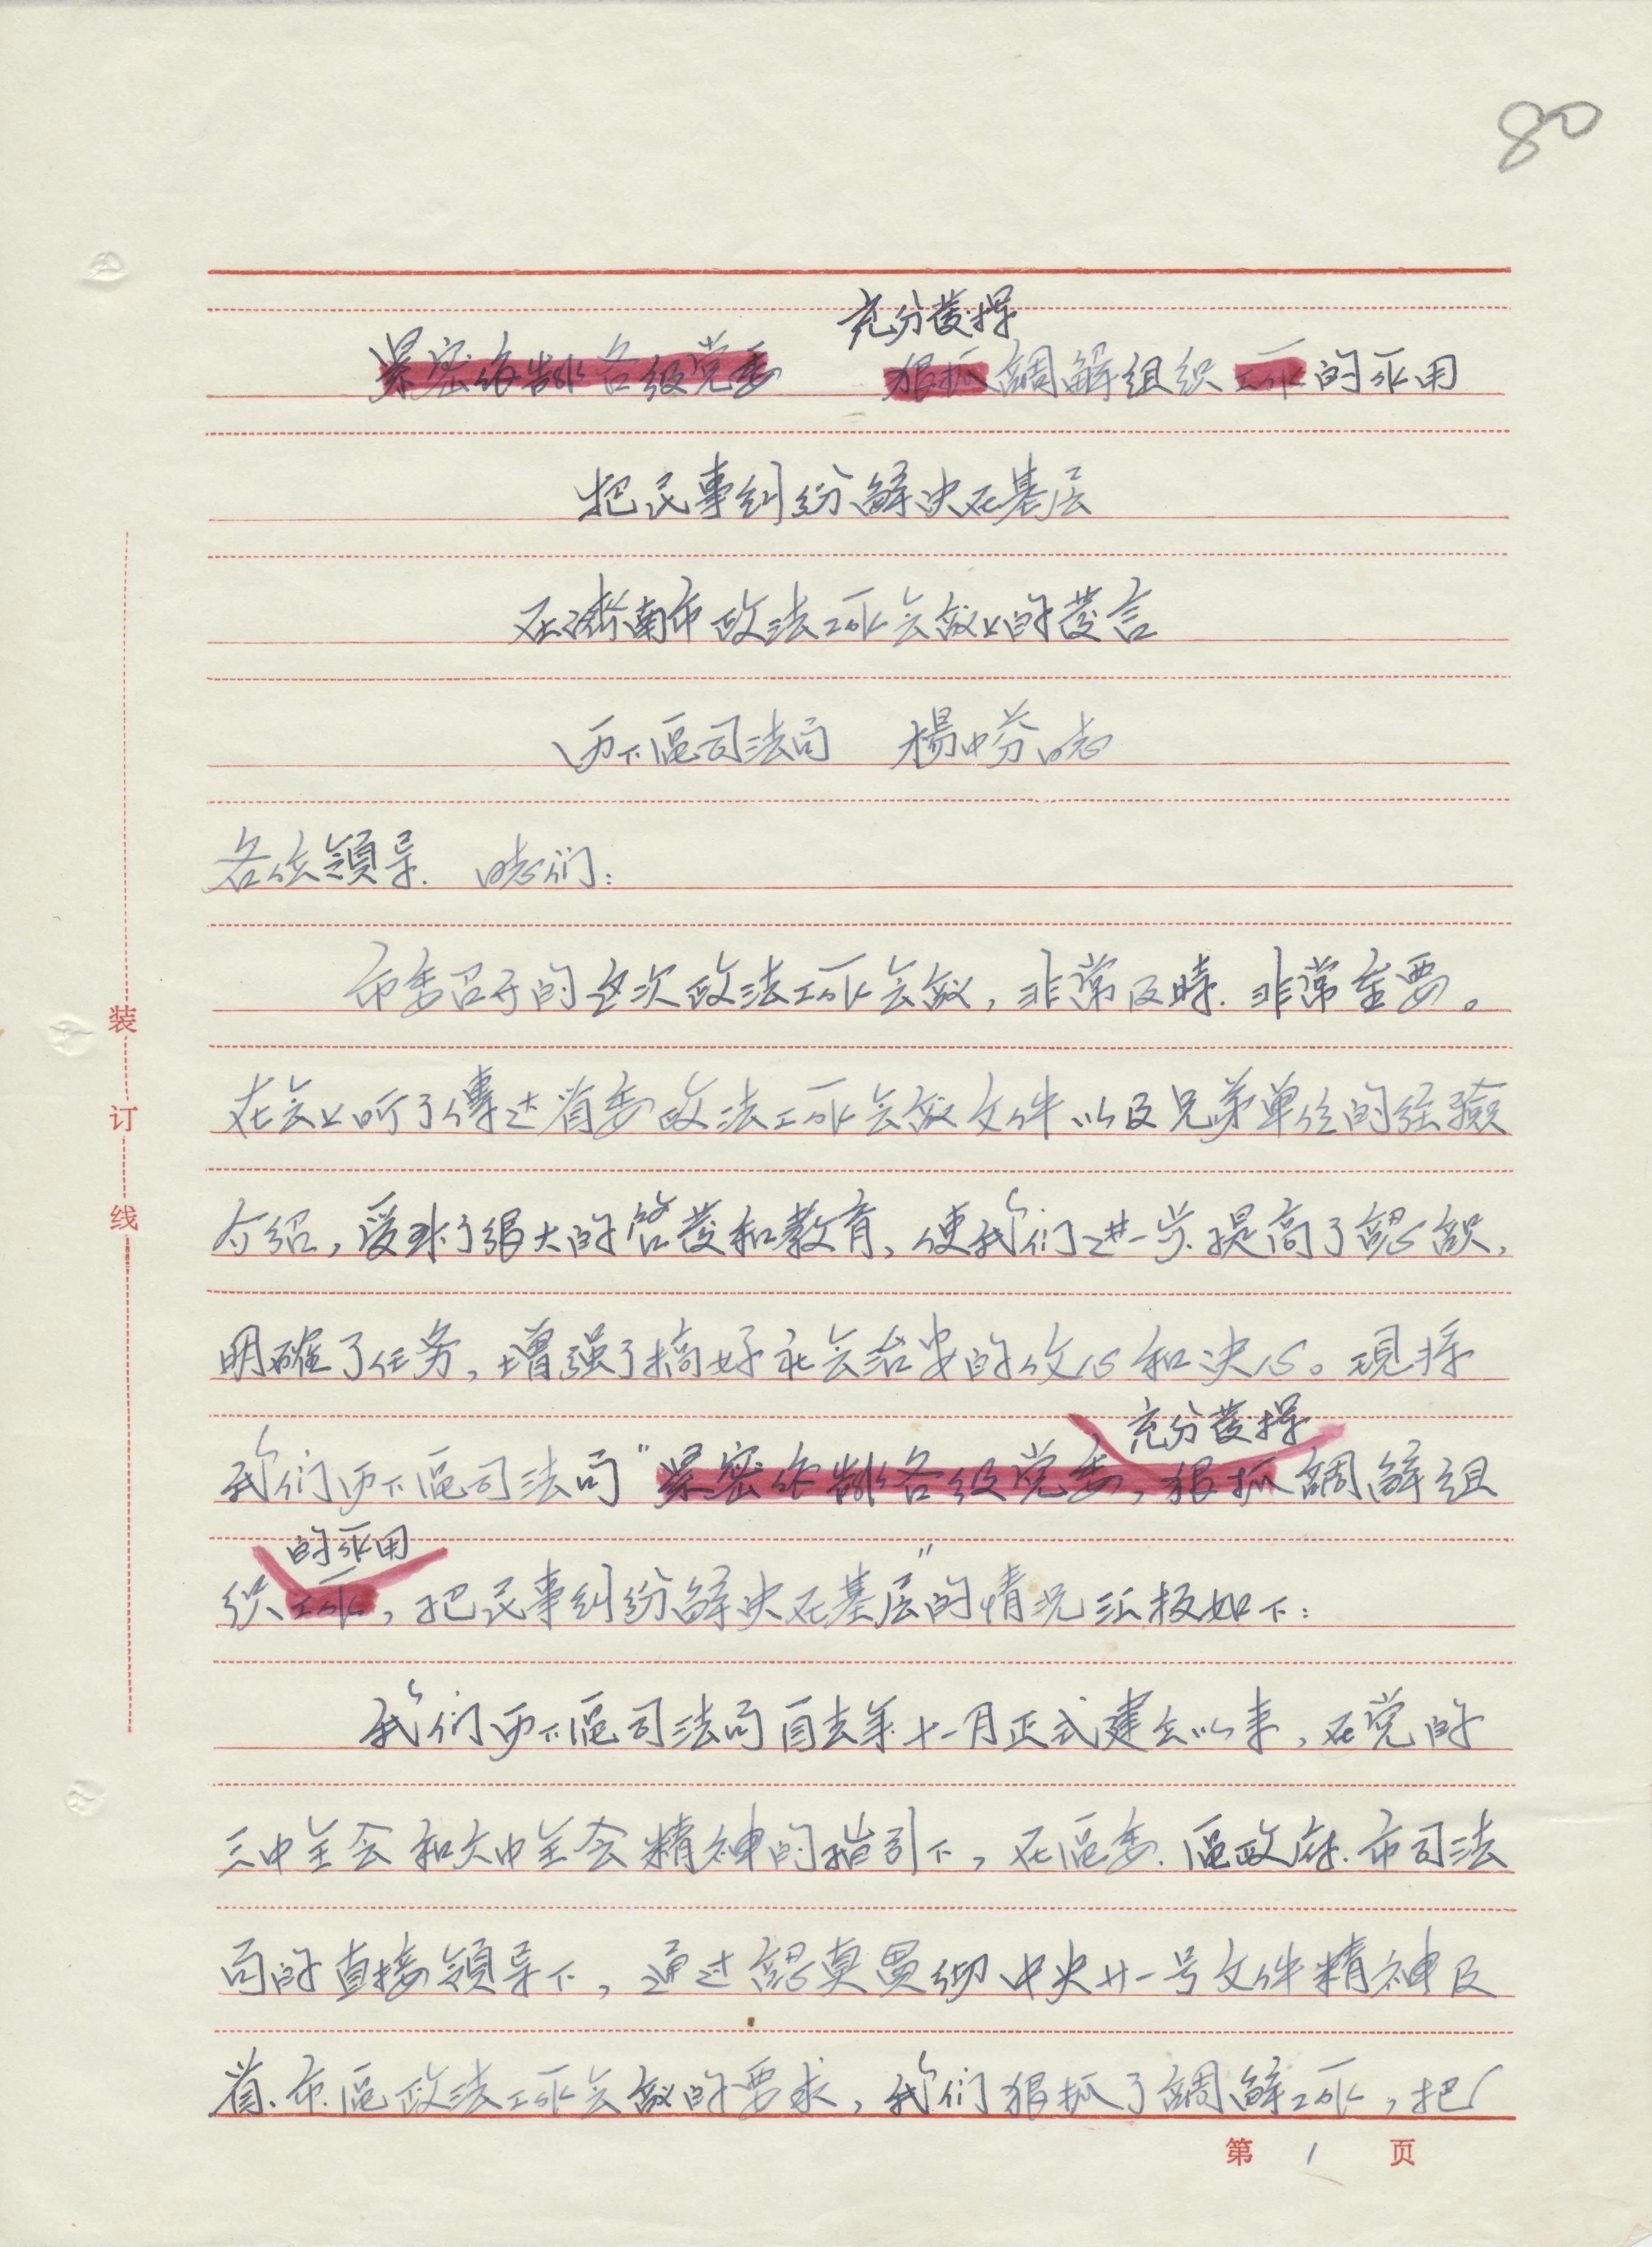 80
充分發揮
紧密依靠各级党委 狠抓調解组织工作的作用
把民事纠纷解决在基层
在濟南市政法工作会議上的發言
历下區司法局 楊中芬同志
各位領导、同志们：
市委召开的这次政法工作会議，非常及時、非常重要。
在会上听了傳达省委政法工作会議文件以及兄弟单位的经驗
介绍，受到了很大的啓發和教育，使我们进一步提高了認識，
明確了任务，增强了搞好社会治安的信心和决心。现将
充分發揮
我们历下區司法局“紧密依靠各级党委，狠抓調解组
的作用
织工作，把民事纠纷解决在基层”的情况汇报如下：
我们历下區司法局自去年十一月正式建立以来，在党的
三中全会和六中全会精神的指引下，在區委、區政府、市司法
局的直接領导下，通过認真贯彻中央廿一号文件精神及
省、市、區政法工作会議的要求，我们狠抓了調解工作，把
装
订
线
第 1 页